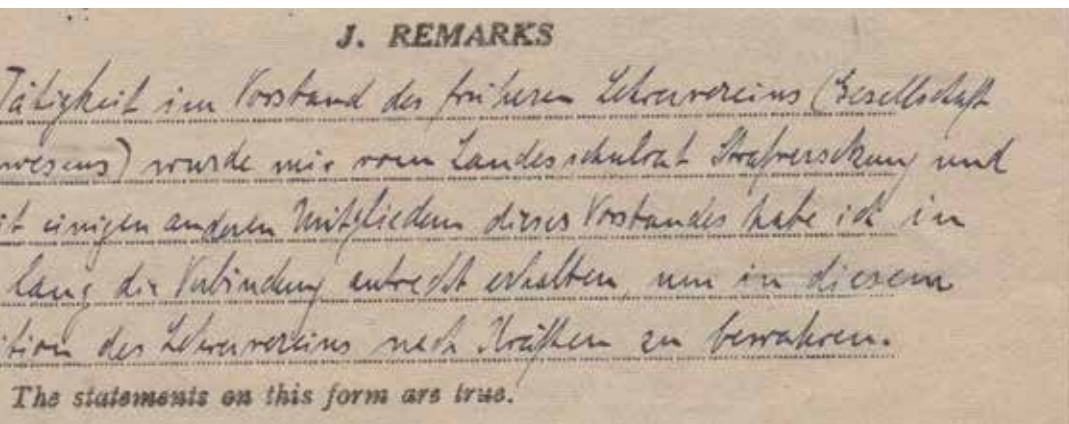 J. REMARKS
Tätigkeit im Vorstand des früheren Lehrervereins (Gesellschaft
wesens) wurde mir vom Landesschulrat Strafversetzung und
it einigen anderen Mitgliedern dieses Vorstandes habe ich in
lang die Verbindung aufrecht erhalten, um in diesem
ition des Lehrervereins nach Kräften zu bewahren.
The statements on this form are true.